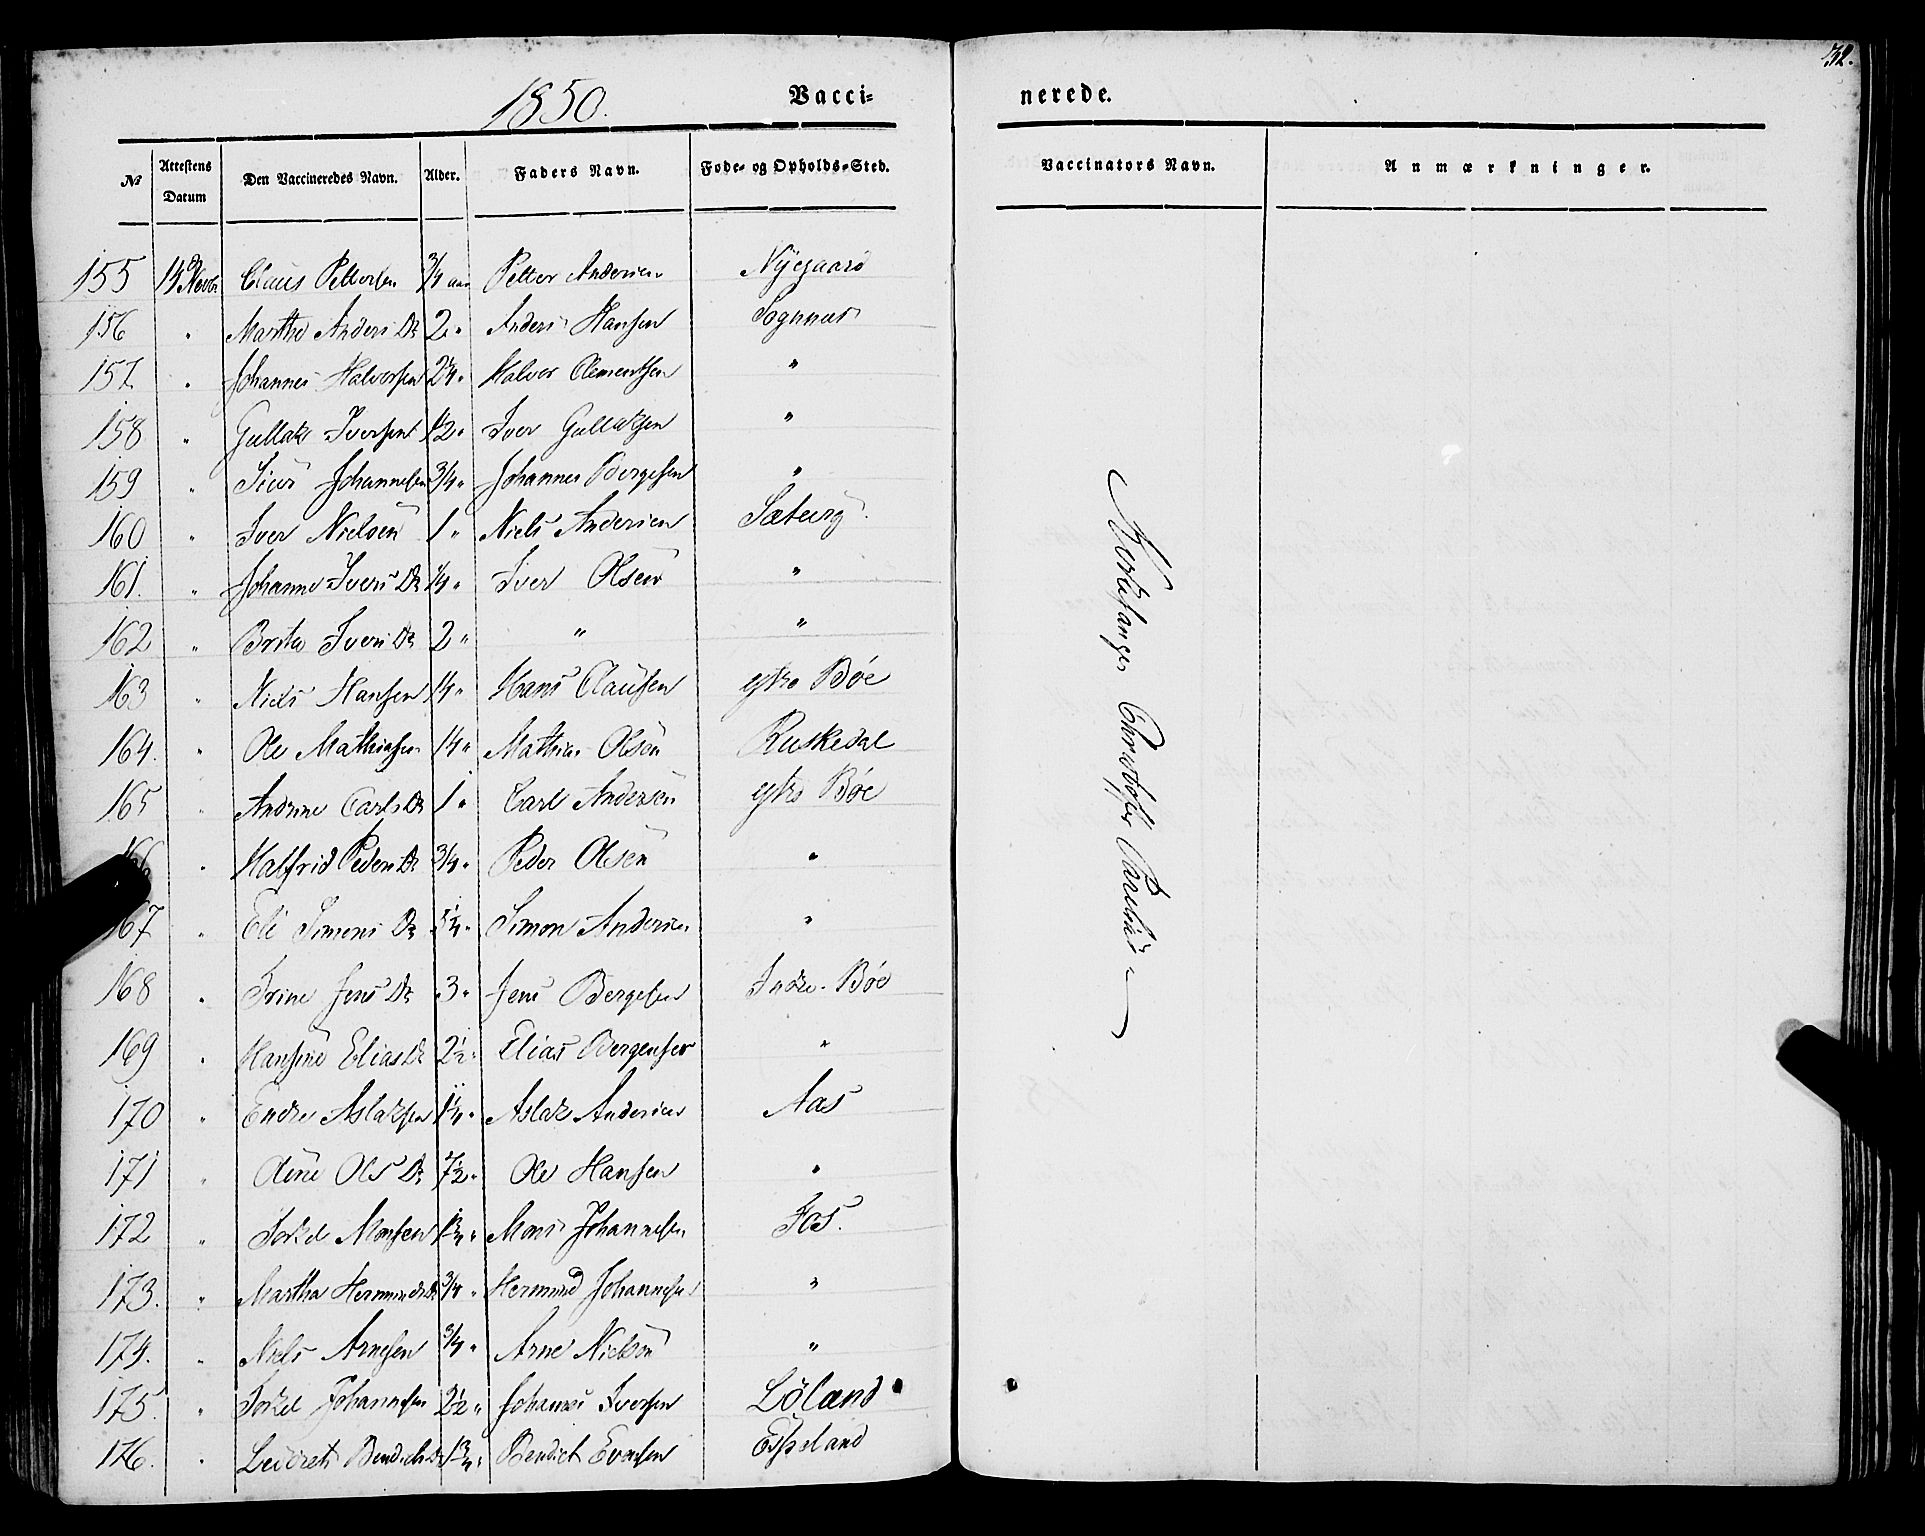 32.
1850.
Vacci=
nerede.
№ Attestens Datum Den Vaccineredes Navn. Alder. Faders Navn. Føde- og Opholds-Sted.
Vaccinators Navn. Anmærkninger.
155 14 Novbr Claus Pettersen 3/4 aar Petter Andersen Nÿegaard
156 " Martha Anders Dr 2 " Anders Hansen Sognnæs
157 " Johannes Halvorsen 2 1/4 " Halvor Clementsen "
158 " Gullak Iversen 1/2 " Iver Gullaksen "
159 " Siur Johannesen 3/4 " Johannes Børgesen "
160 " Iver Nielsen 1 " Niels Andersen Sæturg
161. " Johanne Ivers Dr 1/4 " Iver Olsen "
162 " Brita Ivers Dr 2 " " "
163 " Niels Hansen 1/4 " Hans Clausen ytre Bøe
164. " Ole Mathiasen 1/4 " Mathias Olsen Ruskedal
165 " Andrine Carls Dr 1 " Carl Andersen ytre Bøe
166 " Halfrid Peders Dr 3/4 " Peder Olsen "
167 " Eli Simons Dr " Simon Andersen "
168 " Trine Jens Dr 3 " Jens Børgesen Indre Bøe
169 " Hansine Elias Dr 2 1/2 " Elias Børgensen "
170 " Endre Aslaksen 1 1/4 " Aslak Andersen Aas
171 " Oline Ols Dr 7 1/2 " Ole Hansen "
172 " Torkel Monsen 1 3/4 " Mons Johannesen Fos.
173. " Martha Hermunds Dr 3/4 " Hermund Johannesen "
174. " Niels Arnesen 3/4 " Arne Nielsen "
175. " Torkel Johannesen 2 1/2 " Johannes Iversen Löland
176. " Bendicts Dr 1 3/4 " Bendict Evensen Espeland
Kirkesanger Christoffer